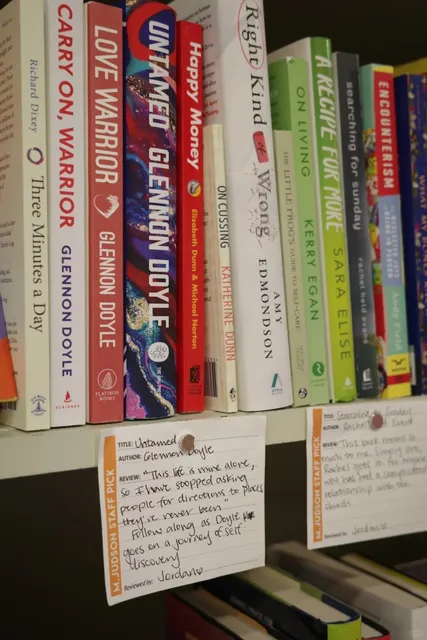 Richard Dixey Three Minutes a Day
CARRY ON, WARRIOR GLENNON DOYLE
LOVE WARRIOR GLENNON DOYLE
FLATIRON BOOKS
UNTAMED GLENNON DOYLE
Happy Money Elizabeth Dunn & Michael Norton
ON CUSSING KATHERINE DUNN
Right Kind of Wrong AMY EDMONDSON
THE LITTLE FROG'S GUIDE TO SELF-CARE
ON LIVING KERRY EGAN
A RECIPE FOR MORE SARA ELISE
searching for sunday rachel held evans
ENCOUNTERISM Andy Field
M. JUDSON STAFF PICK
TITLE: Untamed
AUTHOR: Glennon Doyle
REVIEW: "This life is mine alone,
so I have stopped asking
people for directions to places
they've never been"
Follow along as Doyle
goes on a journey of self
discovery
Reviewed by: Jordan
M. JUDSON STAFF PICK
TITLE: Searching Sunday
AUTHOR: Rachel
REVIEW: This book means so
much to me.
Rachel gets it. For anyone
who has had a complicated
relationship with the
church
Reviewed by: Jordan